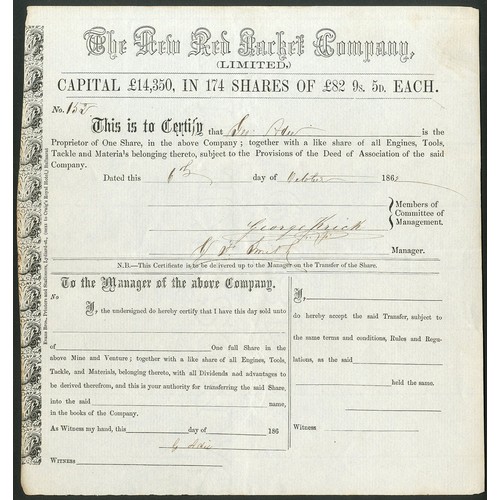 The New Red Jacket Company,
(LIMITED.)
CAPITAL £14,350, IN 174 SHARES OF £82 9s. 5D. EACH.
No. 152
This is to Certify that is the
Proprietor of One Share, in the above Company; together with a like share of all Engines, Tools,
Tackle and Materia's belonging thereto, subject to the Provisions of the Deed of Association of the said
Company.
Dated this 6th day of October 186
George Krick
Members of
Committee of
Management.
Manager.
N.B.—This Certificate is to be delivered up to the Manager on the Transfer of the Share.
To the Manager of the above Company.
No
I, the undersigned do hereby certify that I have this day sold unto
of One full Share in the
above Mine and Venture; together with a like share of all Engines, Tools,
Tackle, and Materials, belonging thereto, with all Dividends and advantages to
be derived therefrom, and this is your authority for transferring the said Share,
into the said name,
in the books of the Company.
As Witness my hand, this day of 186
WITNESS
I,
do hereby accept the said Transfer, subject to
the same terms and conditions, Rules and Regu-
lations, as the said
held the same.
Witness